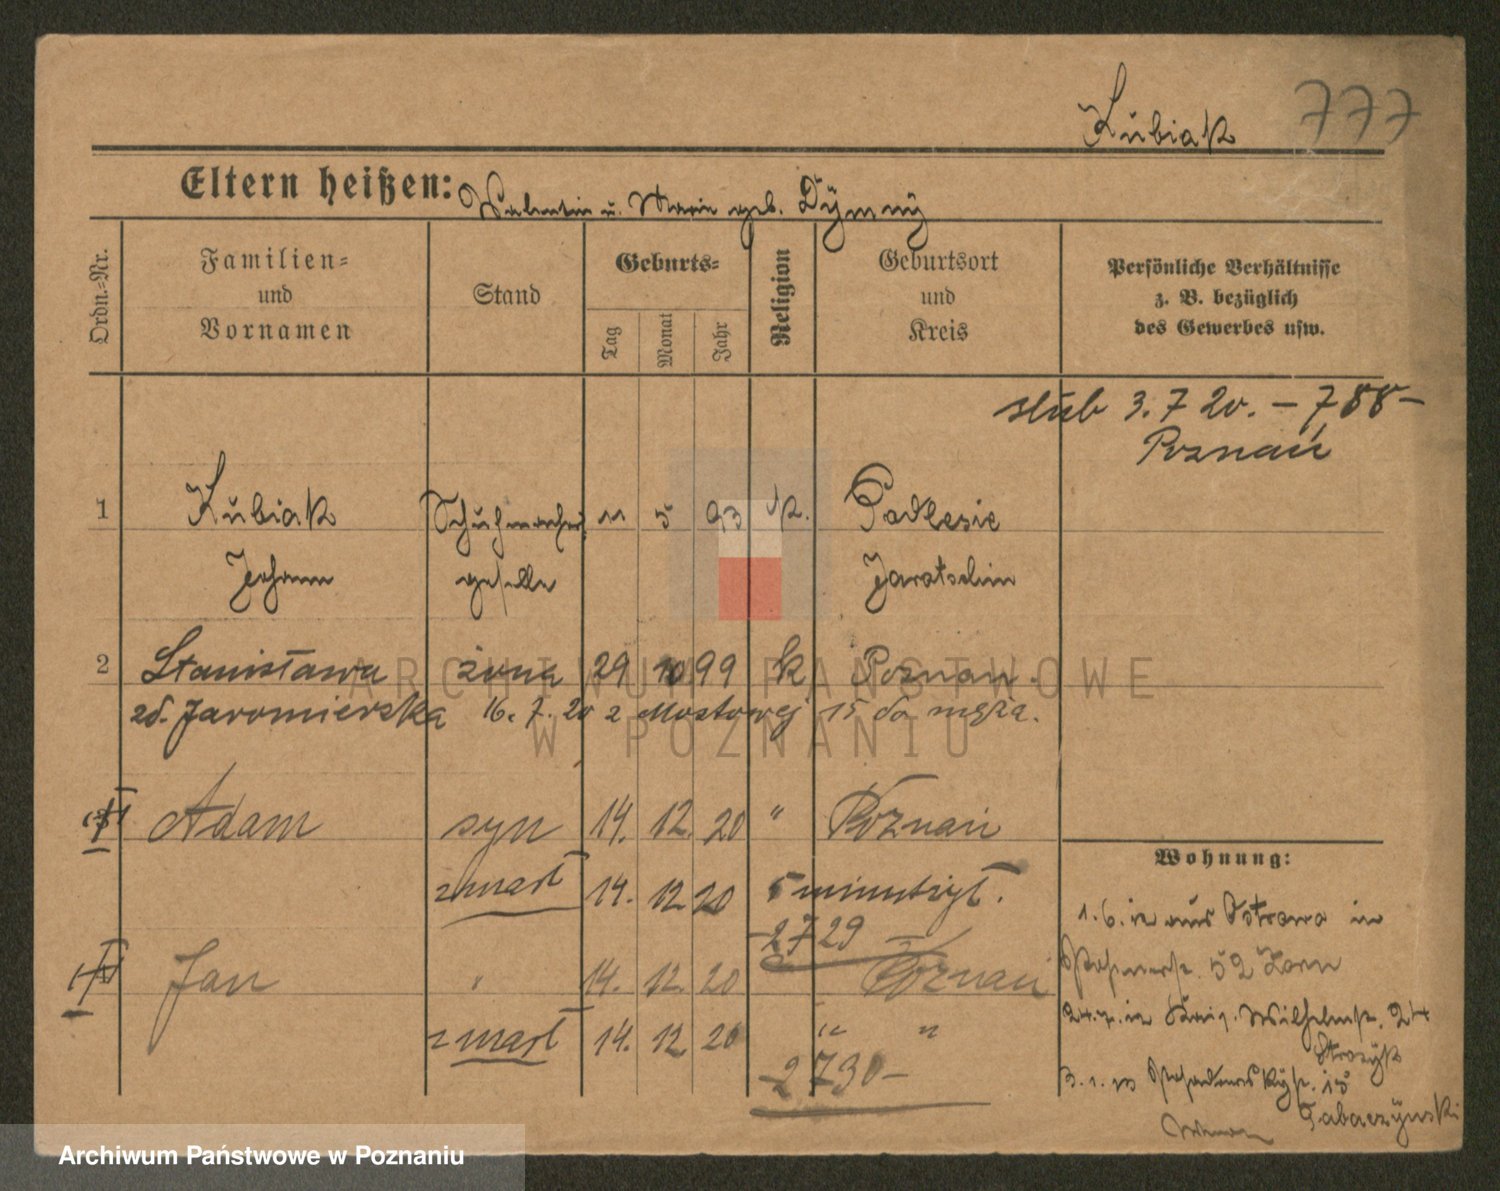 Kubiak 777
Eltern heißen: Valentin u. Marie geb. Dymny
Ordn.-Nr.
Familien-
und
Vornamen
Stand
Geburts-
Tag
Monat
Jahr
Religion
Geburtsort
und
Kreis
Persönliche Verhältnisse
z. B. bezüglich
des Gewerbes usw.
ślub 3. 7 20. – 788 –
Poznań
1 Kubiak Schuhmacher 11 5 93 k. Podlesie
Johann geselle Jarotschin
2 Stanisława żona 29 10 99 k Poznań.
zd. Jaromierska 16. 7. 20 z Mostowej 15 do męża.
Adam syn 14. 12. 20 " Poznań
zmarł 14. 12 20 5 minut żył.
– 2729
Jan " 14. 12. 20 Poznań
zmarł 14. 12. 20 " "
– 2730 –
Wohnung:
1. 6. aus Ostrowo in
52
24. 7. Wilhelmstr. 24
3. 1. 15
Tabaczynski
ARCHIWUM PAŃSTWOWE
W POZNANIU
Archiwum Państwowe w Poznaniu